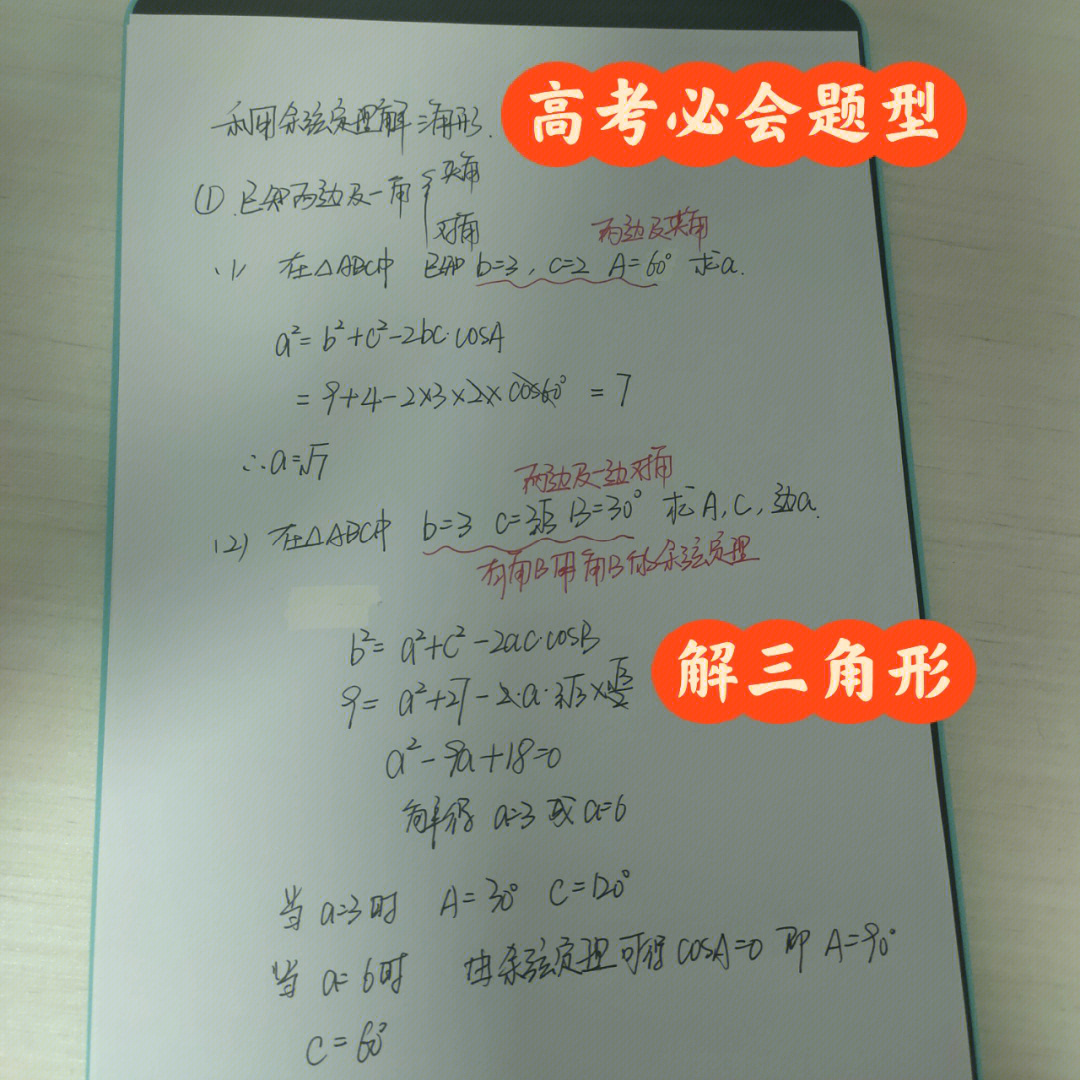 高考必会题型
利用余弦定理解三角形.
① 已知两边及一角{夹角
对角
两边及夹角
(1) 在△ABC中 已知 b=3, c=2 A=60° 求a.
a²=b²+c²-2bc·cosA
=9+4-2×3×2×cos60°=7
∴a=√7
两边及一边对角
(2) 在△ABC中 b=3 c=3√3 B=30° 求A,C,边a.
有角B用角B的余弦定理
b²=a²+c²-2ac·cosB
解三角形
9=a²+27-2·a·3√3×√3/2
a²-9a+18=0
解得 a=3 或 a=6
当 a=3时 A=30° C=120°
当 a=6时 由余弦定理可得 cosA=0 即 A=90°
C=60°